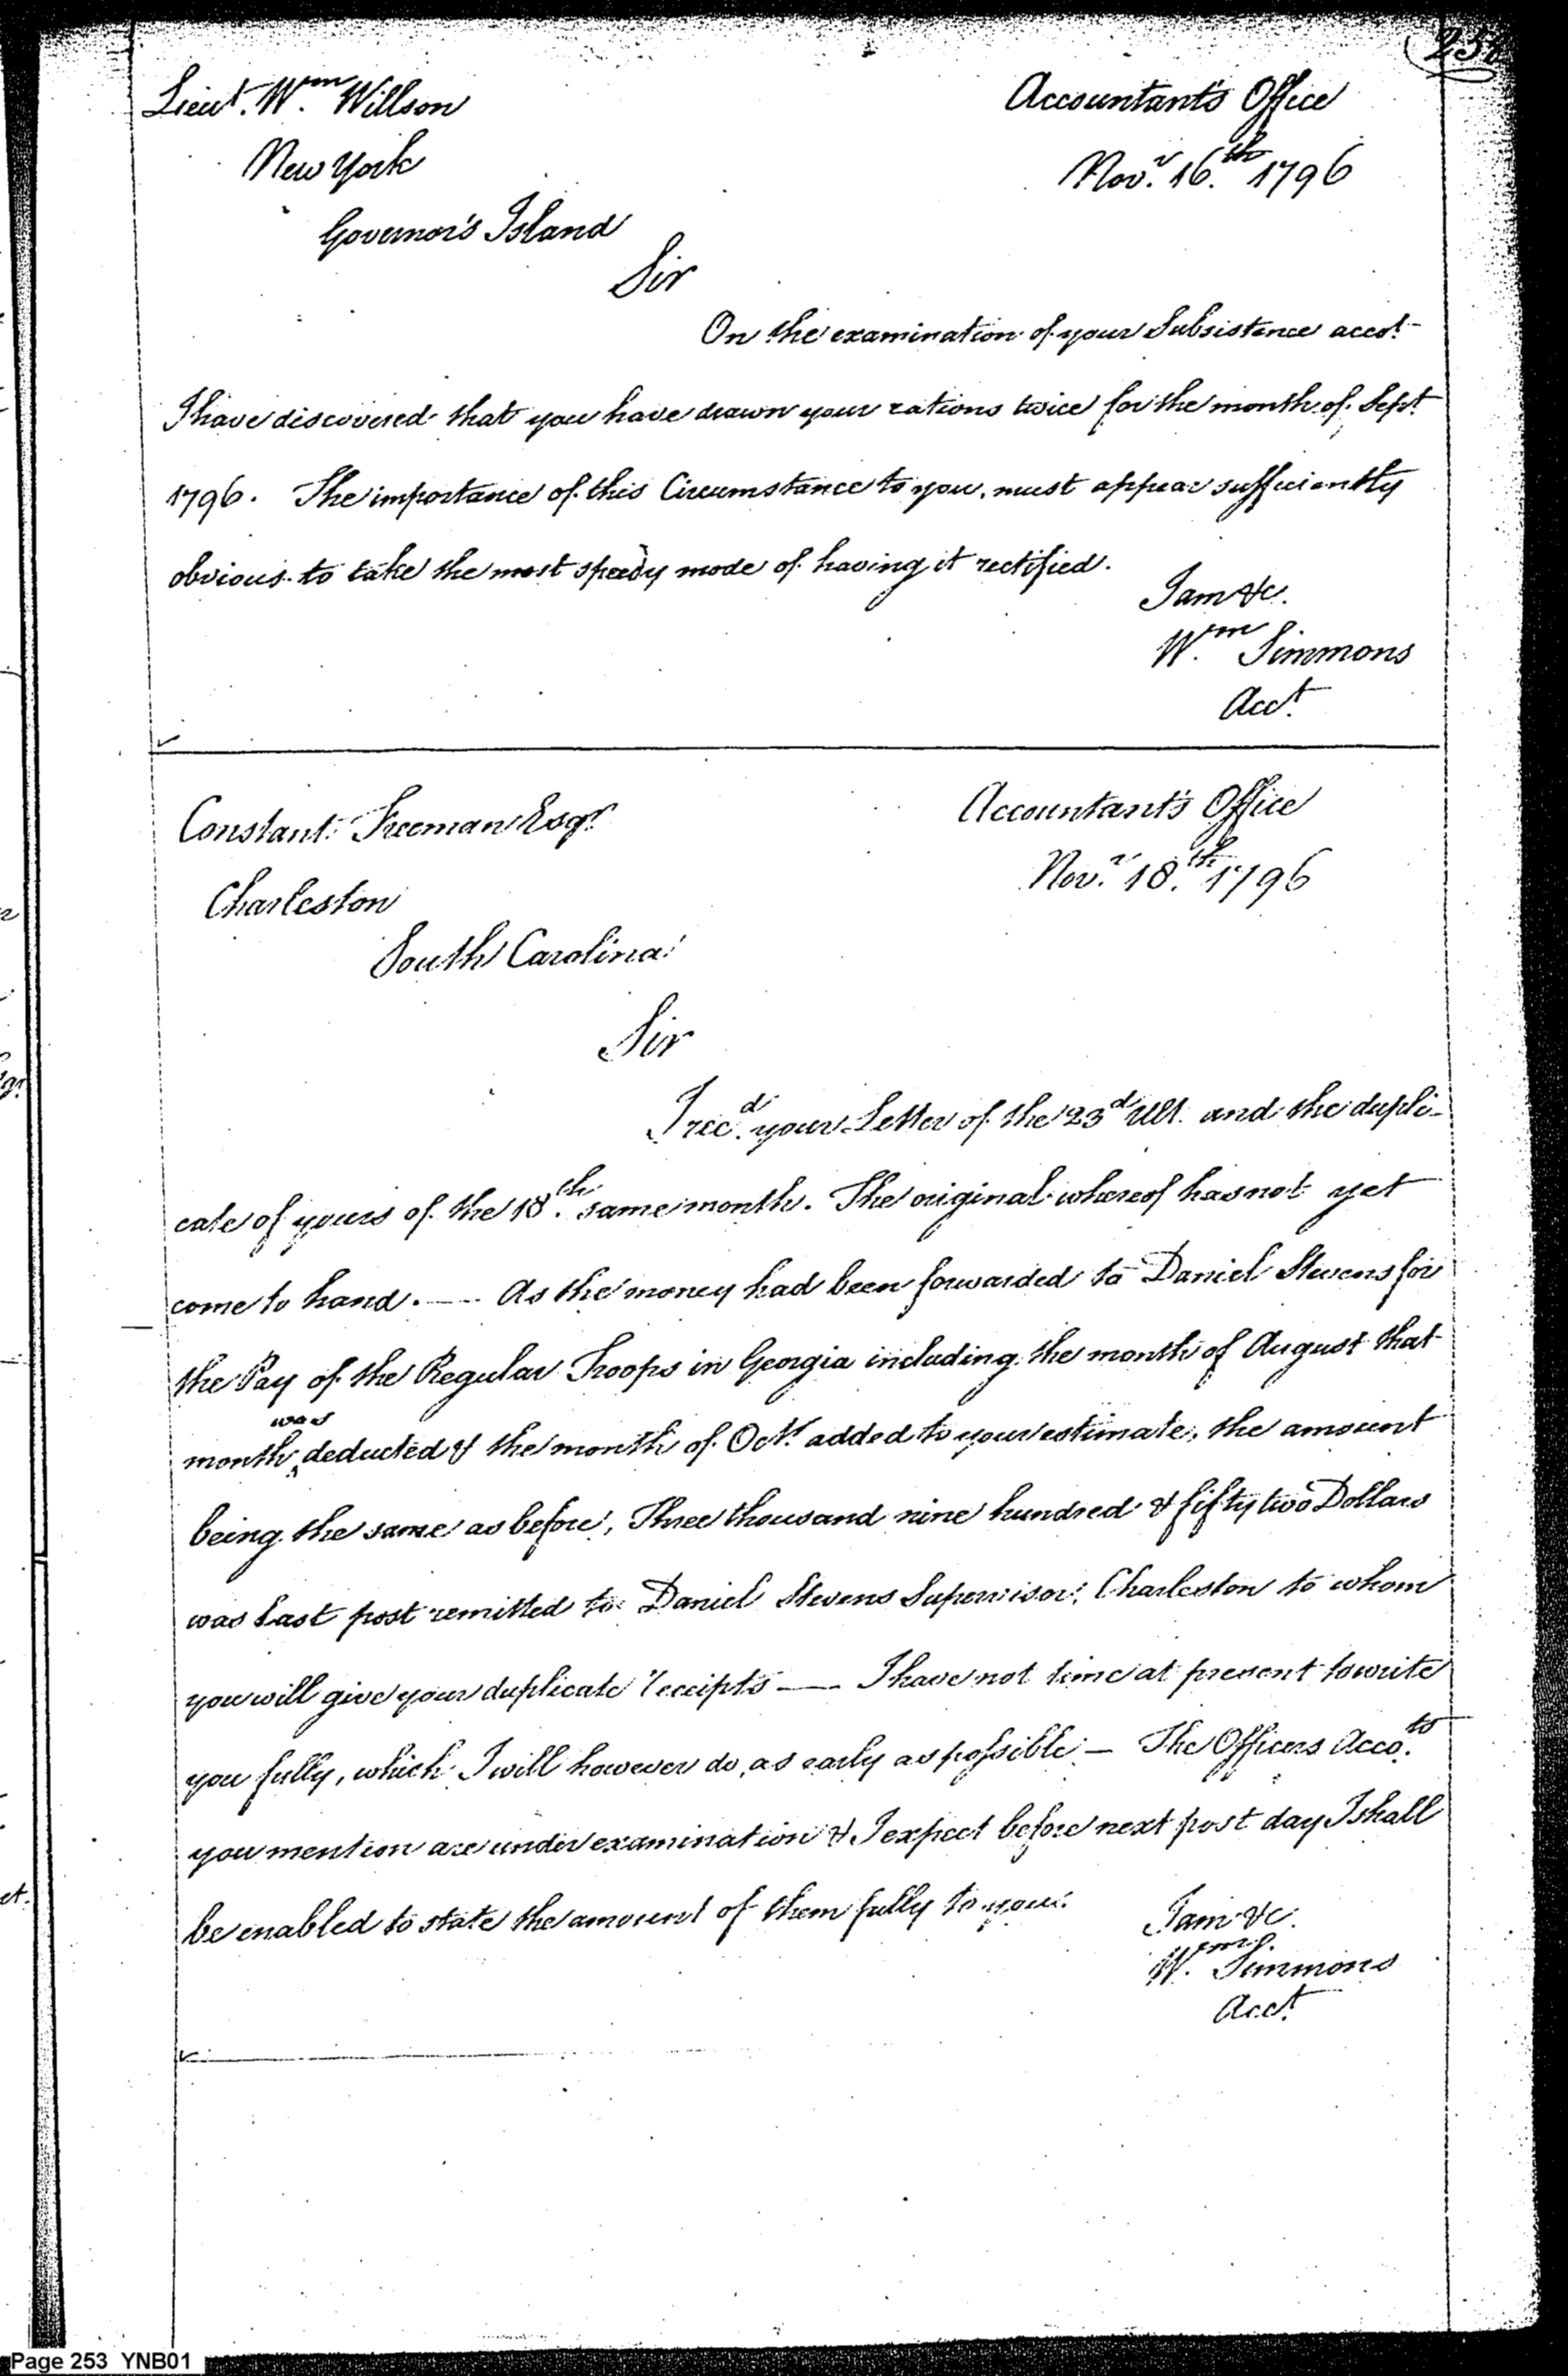 Lieut. Wm. Willson
Accountant's Office
New York
Novr. 16th. 1796
Governor's Island
Sir
On the examination of your Subsistence accot.
I have discovered that you have drawn your rations twice for the month of Sept.
1796. The importance of this Circumstance to you, must appear sufficiently
obvious to take the most speedy mode of having it rectified.
I am &c.
Wm. Simmons
Acct.
Constant Freeman Esqr.
Accountant's Office
Charleston
Novr. 18th. 1796
South Carolina
Sir
I recd. your Letter of the 23d Ult. and the dupli-
cate of yours of the 18th. same month. The original whereof has not yet
come to hand. —— As the money had been forwarded to Daniel Stevens for
the Pay of the Regular Troops in Georgia including the month of August that
month was deducted & the month of Octr. added to your estimate, the amount
being the same as before, Three thousand nine hundred & fifty two Dollars
was last post remitted to Daniel Stevens Supervisor, Charleston to whom
you will give your duplicate receipts —— I have not time at present to write
you fully, which I will however do, as early as possible — The Officers Accots.
you mention are under examination & I expect before next post day I shall
be enabled to state the amount of them fully to you.
I am &c.
Wm. Simmons
Acct.
Page 253 YNB01